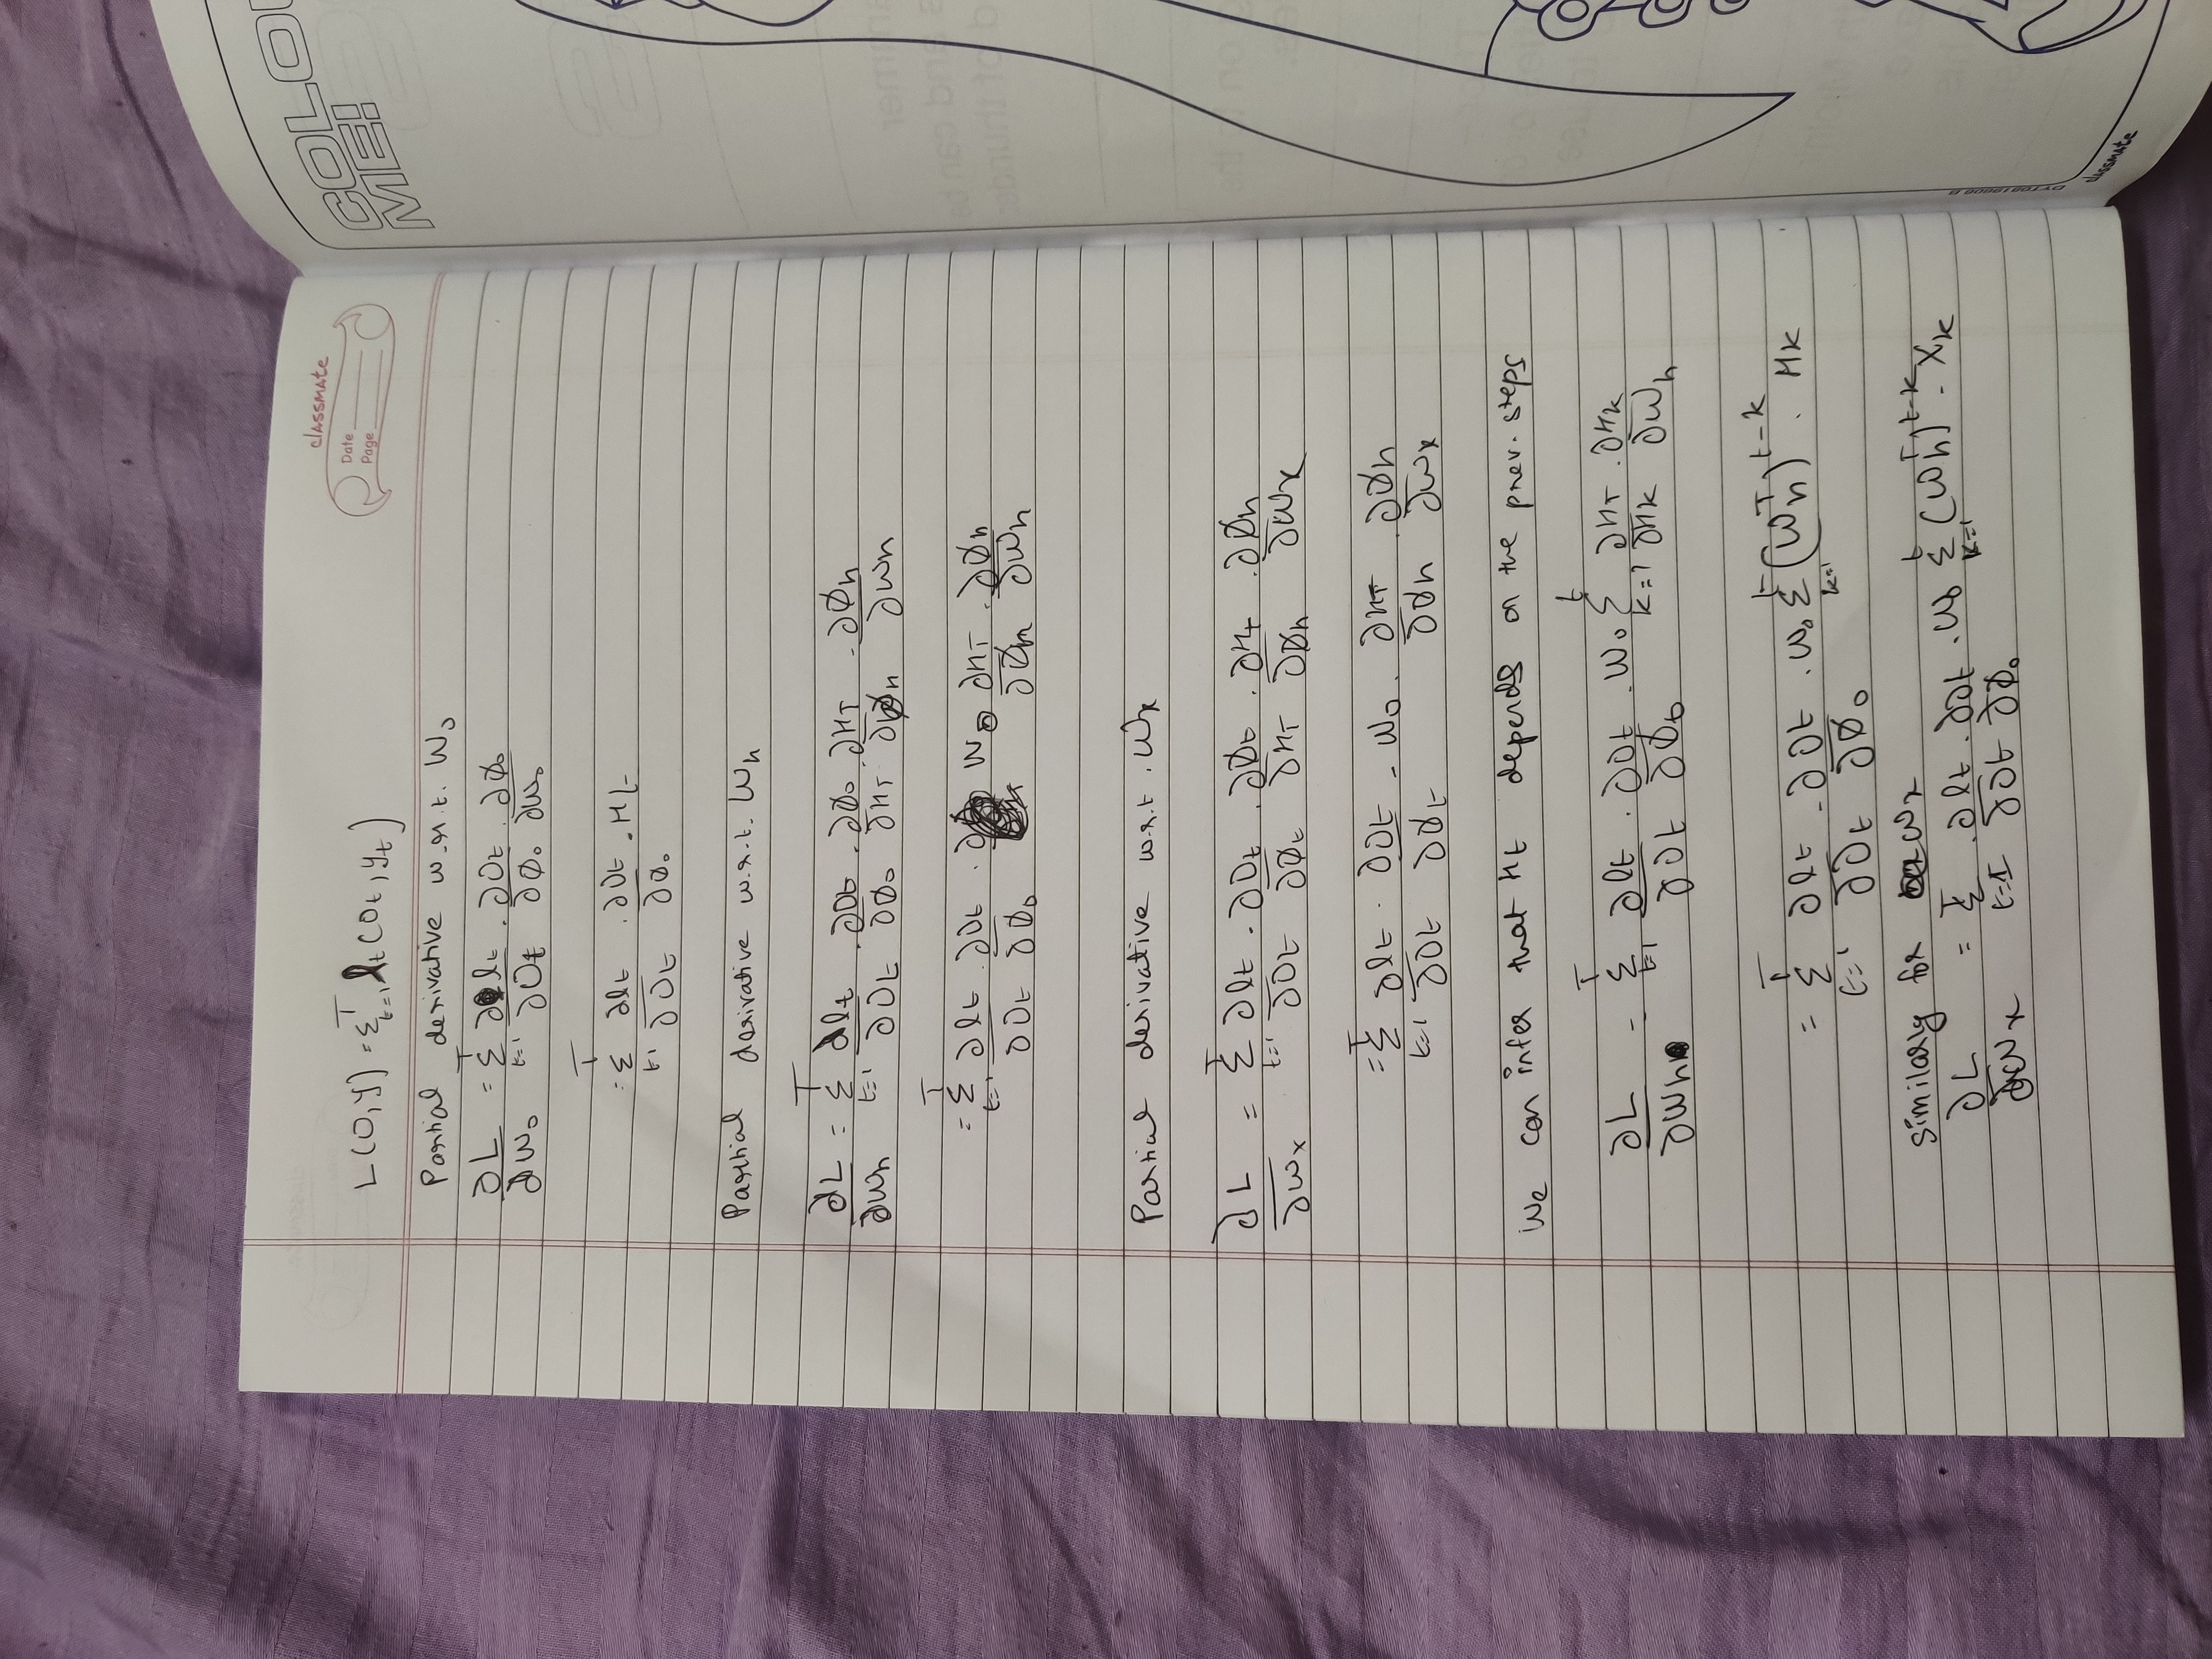 classmate
Date
Page
COLOU
ME!
L(O,y) = Σ_{t=1}^{T} l_t(O_t, y_t)
Partial derivative w.r.t. W_o
∂L/∂W_o = Σ_{t=1}^{T} ∂l_t/∂O_t · ∂O_t/∂Ø_o · ∂Ø_o/∂W_o
= Σ_{t=1}^{T} ∂l_t/∂O_t · ∂O_t/∂Ø_o · H_t
Partial derivative w.r.t. W_h
∂L/∂W_h = Σ_{t=1}^{T} ∂l_t/∂O_t · ∂O_t/∂Ø_o · ∂Ø_o/∂H_T · ∂H_T/∂Ø_h · ∂Ø_h/∂W_h
= Σ_{t=1}^{T} ∂l_t/∂O_t · ∂O_t/∂Ø_o · W_o ∂H_T/∂Ø_h · ∂Ø_h/∂W_h
Partial derivative w.r.t. W_x
∂L/∂W_x = Σ_{t=1}^{T} ∂l_t/∂O_t · ∂O_t/∂Ø_t · ∂Ø_t/∂H_T · ∂H_T/∂Ø_h · ∂Ø_h/∂W_x
= Σ_{t=1}^{T} ∂l_t/∂O_t · ∂O_t/∂Ø_t · W_o · ∂H_T/∂Ø_h · ∂Ø_h/∂W_x
We can infer that H_t depends on the prev. steps
∂L/∂W_h = Σ_{t=1}^{T} ∂l_t/∂O_t · ∂O_t/∂Ø_o · W_o Σ_{k=1}^{t} ∂H_T/∂H_k · ∂H_k/∂W_h
= Σ_{t=1}^{T} ∂l_t/∂O_t · ∂O_t/∂Ø_o · W_o Σ_{k=1}^{t} (W_h^T)^{t-k} · H_k
similarly for W_x
∂L/∂W_x = Σ_{t=1}^{T} · ∂l_t/∂O_t · ∂O_t/∂Ø_o · W_o Σ_{k=1}^{t} (W_h^T)^{t-k} · X_k
classmate